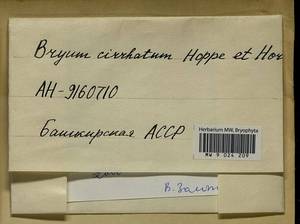 Bryum cirrhatum Hoppe et Hor
АН-9160710
Башкирская АССР
Herbarium MW, Bryophyta
MW 9 024 209
В.